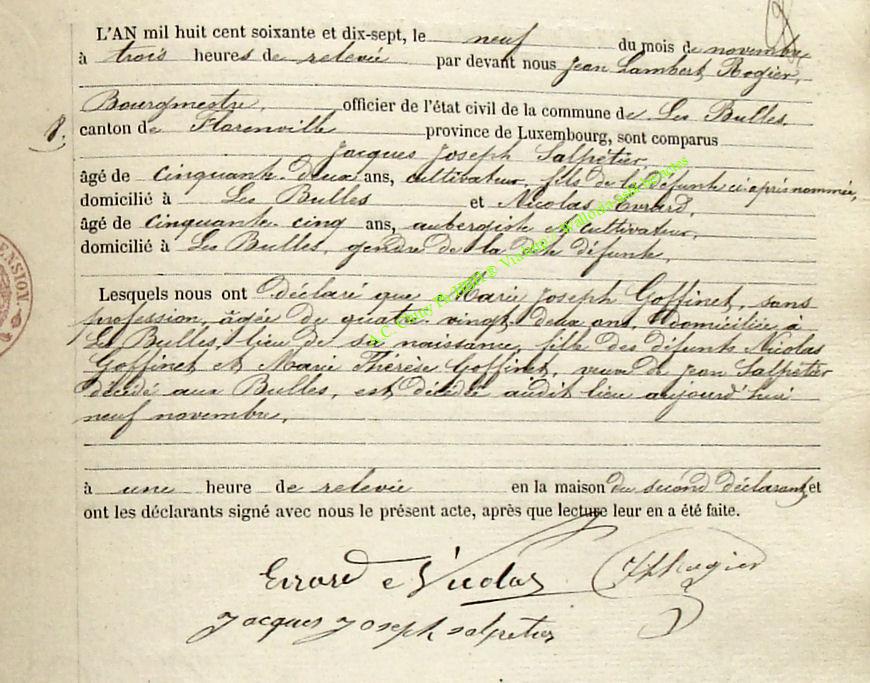 L'AN mil huit cent soixante et dix-sept, le neuf du mois de novembre
à trois heures de relevée par devant nous Jean Lambert Rogier,
Bourgmestre, officier de l'état civil de la commune de Les Bulles,
8. canton de Florenville province de Luxembourg, sont comparus
Jacques Joseph Salpétier,
âgé de cinquante-deux ans, cultivateur, fils de la défunte ci après nommée,
domicilié à Les Bulles et Nicolas Evrard,
âgé de cinquante-cinq ans, aubergiste et cultivateur,
domicilié à Les Bulles, gendre de la dite défunte,
Lesquels nous ont déclaré que Marie Joseph Goffinet, sans
profession, âgée de quatre-vingt-deux ans, domiciliée à
Les Bulles, lieu de sa naissance, fille des défunts Nicolas
Goffinet et Marie Thérèse Goffinet, veuve de Jean Salpétier
décédé aux Bulles, est décédée audit lieu aujourd'hui
neuf novembre,
à une heure de relevée en la maison du second déclarant, et
ont les déclarants signé avec nous le présent acte, après que lecture leur en a été faite.
Nicolas
Jacques Joseph salpetier
ENSION
A.C. Chiny